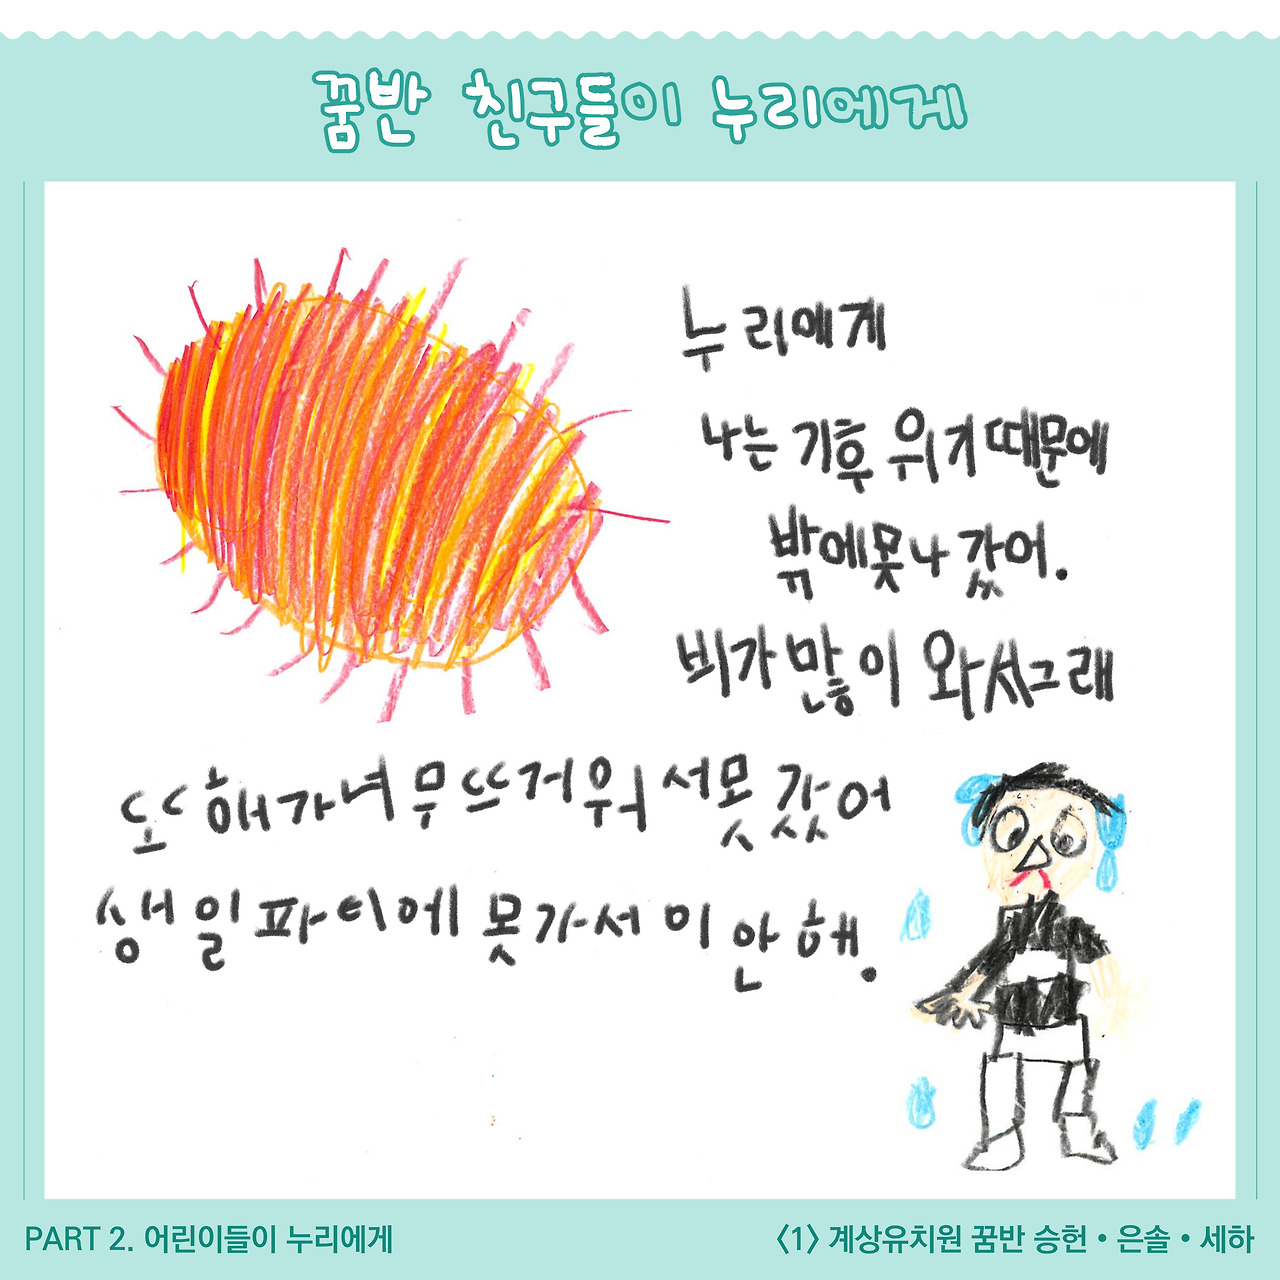 꿈반 친구들이 누리에게
누리에게
나는 기후 위기 때문에
밖에 못 나 갔어.
비가 많이 와서 그래
또 해가 너무 뜨거워서 못 갔어
생일 파티에 못 가서 미안해.
PART 2. 어린이들이 누리에게
〈1〉 계상유치원 꿈반 승헌 • 은솔 • 세하